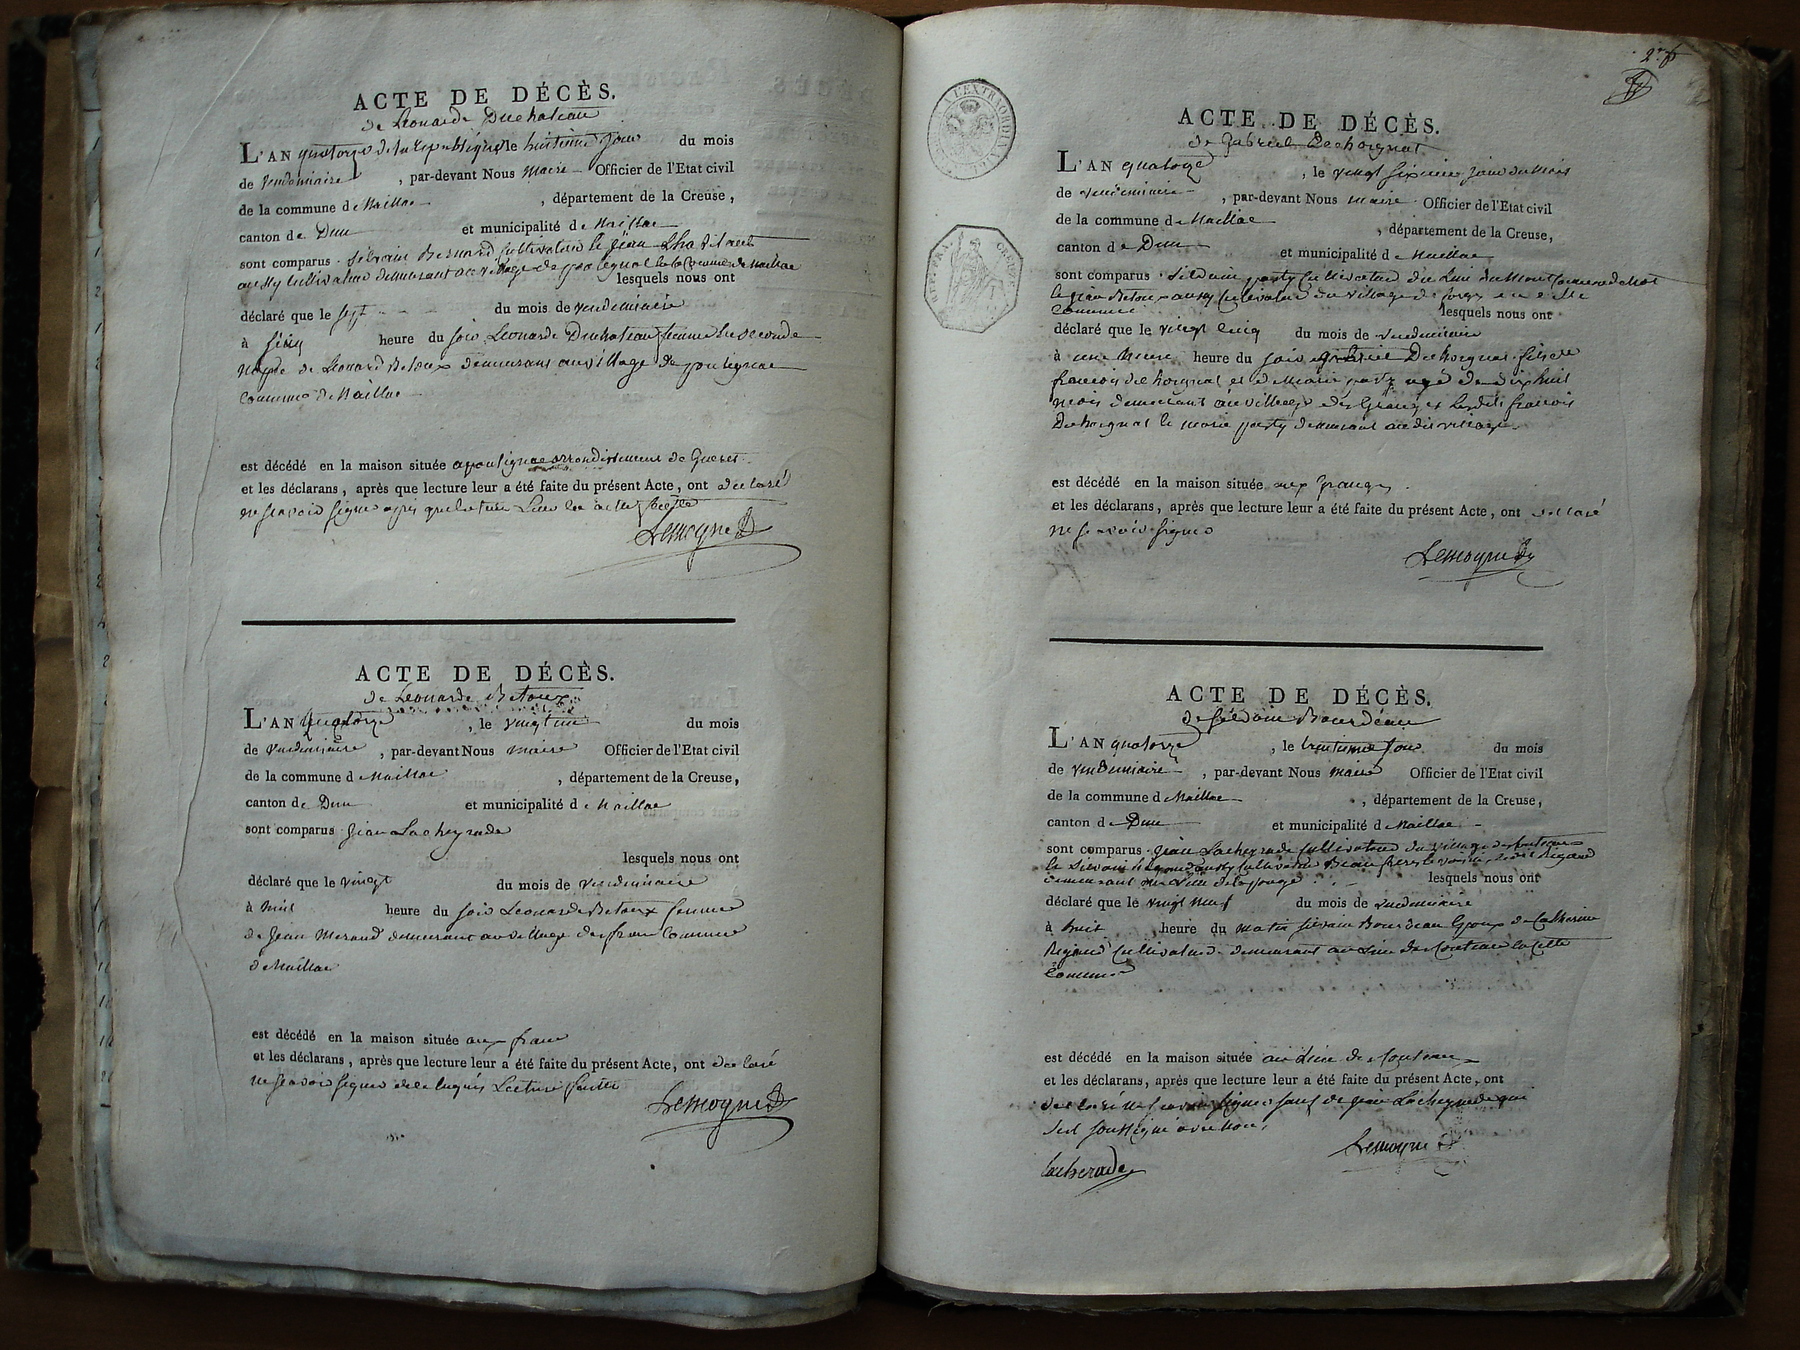 ACTE DE DÉCÈS.
de Leonarde Duchateau
L'AN quatorze de la republique le huitieme jour du mois
de Vendemiaire, par-devant Nous maire Officier de l'Etat civil
de la commune de Maillac, département de la Creuse,
canton de Dun et municipalité de Maillac
sont comparus Silvain Besnard Cultivateur le jean
aussy Cultivateur demeurant au village de la Commune de Maillac lesquels nous ont
déclaré que le sept du mois de vendemiaire
à cinq heure du soir Leonarde Duchateau femme en seconde
de Leonard Betoux demeurant au village de poulignac
Commune de Maillac
est décédé en la maison située a poulignac arrondissement de Gueret
et les déclarans, après que lecture leur a été faite du présent Acte, ont declaré
ne scavoir signer
Lemoyne
ACTE DE DÉCÈS.
de Leonarde Betoux
L'AN quatorze, le vingt un du mois
de vendemiaire, par-devant Nous maire Officier de l'Etat civil
de la commune de Maillac, département de la Creuse,
canton de Dun et municipalité de Maillac
sont comparus jean Lacheyrade
lesquels nous ont
déclaré que le vingt du mois de vendemiaire
à huit heure du soir Leonarde Betoux femme
de Jean Meraud demeurant au village des frans Commune
de Maillac
est décédé en la maison située aux frans
et les déclarans, après que lecture leur a été faite du présent Acte, ont declaré
ne scavoir signer de ce enquis Lecture faitte
Lemoyne
2
A L'EXTRAORDINAIRE
REP. FRA.
ACTE DE DÉCÈS.
de Gabriel Dechoignat
L'AN quatorze, le vingt sixieme jour du mois
de vendemiaire, par-devant Nous maire Officier de l'Etat civil
de la commune de Maillac, département de la Creuse,
canton de Dun et municipalité de Maillac
sont comparus Silvain party Cultivateur du lieu du Mont Commune de
le jean Betoux aussy Cultivateur du village de
Commune lesquels nous ont
déclaré que le vingt cinq du mois de vendemiaire
à une heure heure du soir gabriel Dechoignat fils de
francois dechoignat et de Marie party agé de dix huit
mois demeurant au village des Granges lesdits francois
Dechoignat et marie party demeurant audit village
est décédé en la maison située aux Granges.
et les déclarans, après que lecture leur a été faite du présent Acte, ont declaré
ne scavoir signer
Lemoyne
ACTE DE DÉCÈS.
de silvain Bourdeau
L'AN quatorze, le trentieme jour du mois
de vendemiaire, par-devant Nous maire Officier de l'Etat civil
de la commune de Maillac, département de la Creuse,
canton de Dun et municipalité de Maillac
sont comparus jean Lacheyrade Cultivateur du village
le Silvain aussy Cultivateur Beau frere
demeurant au Lieu de lesquels nous ont
déclaré que le vingt neuf du mois de vendemiaire
à huit heure du matin silvain Bourdeau Epoux de Catherine
Rigaud Cultivateur demeurant au Lieu de
Commune
est décédé en la maison située au Lieu de
et les déclarans, après que lecture leur a été faite du présent Acte, ont
declaré ne scavoir signer sauf le jean Lacheyrade qui
seul soussigné avec nous,
Lemoyne
Lacherade